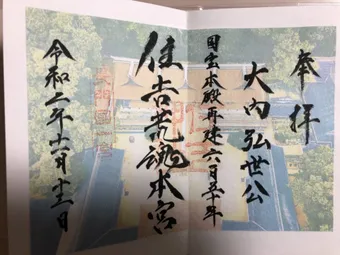 奉拝
大内弘世公
国宝本殿再建六百五十年
住吉荒魂本宮
長門國一宮
令和二年十一月十三日